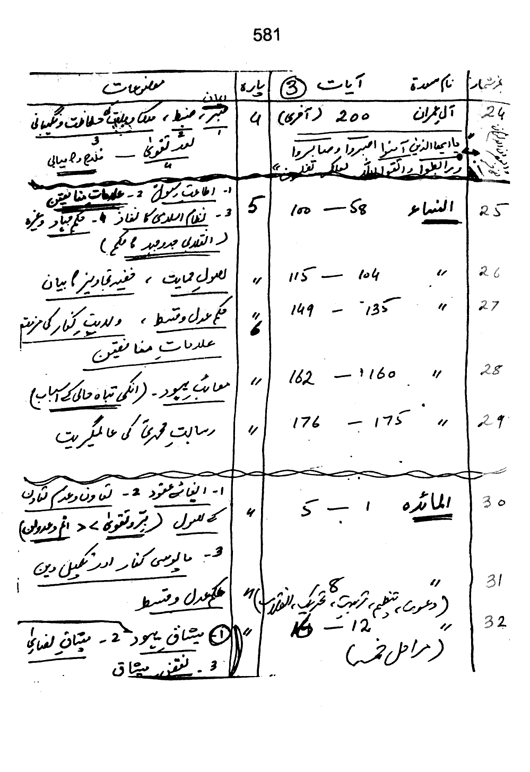 581
نمبرشمار نام سورۃ آیات ③ پارہ معلومات
24 آل عمران 200 (آخری) 4 صبر، ضبط،
یا ایھا الذین آمنوا اصبروا وصابروا
ورابطوا واتقوا اللہ لعلکم تفلحون
اور تقویٰ —
25 النساء 58 — 100 5 1- اطاعت رسول 2- علامات منافقین
3- نظام اسلامی کا نفاذ 4- حکم جہاد وغیرہ
(انقلابی جدوجہد کا حکم)
26 " 104 — 115 " اصول حمایت، خفیہ تجاویز کا بیان
27 " 135 — 149 " 6 حکم عدل وقسط، ولایت کفار کی
علامات منافقین
28 " 160 — 162 " معائب یہود - (انکی تباہ حالی کے اسباب)
29 " 175 — 176 " رسالت محمدیؐ کی عالمگیریت
30 المائدہ 1 — 5 " 1- ایفائے عقود 2- تعاون وعدم تعاون
کے اصول (بر وتقویٰ >< اثم وعدوان)
3- مایوسی کفار اور تکمیل دین
31 " 8 " حکم عدل وقسط
(دعوت، تنظیم، تربیت، تحریک، انقلاب)
32 " 12 — " ①- میثاق یہود 2- میثاق نصاریٰ
(مراحل خمسہ)
3- نقض میثاق